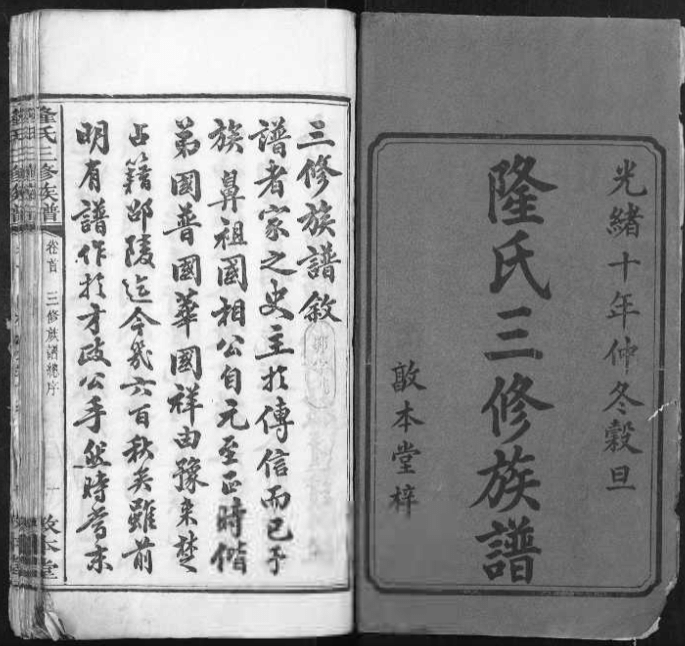 光緒十年仲冬穀旦
隆氏三修族譜
敦本堂梓
三修族譜敘
譜者家之史主於傳信而已予
族鼻祖國相公自元至正時偕
弟國普國華國祥由豫來楚
占籍邵陵迄今幾六百秋矣雖前
明有譜作於才政公手然時當末
隆氏三修族譜
卷首
三修族譜總序
一
敦本堂